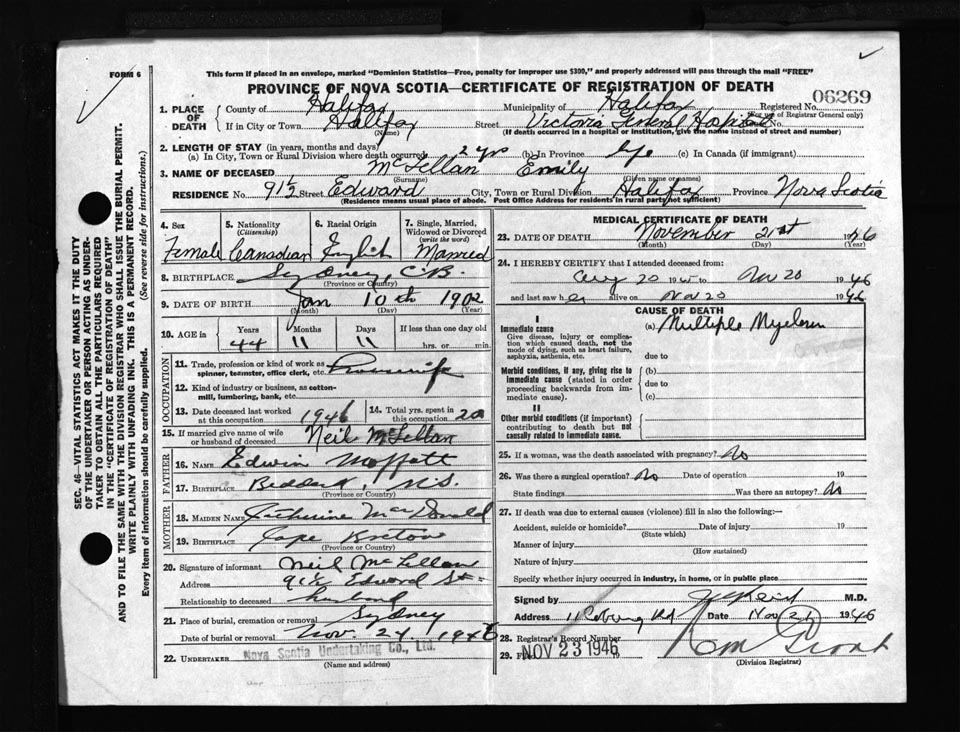 FORM 6
This form if placed in an envelope, marked "Dominion Statistics—Free, penalty for improper use $300," and properly addressed will pass through the mail "FREE"
PROVINCE OF NOVA SCOTIA—CERTIFICATE OF REGISTRATION OF DEATH
06269
1. PLACE OF DEATH
County of Halifax Municipality of Halifax Registered No.
(For use of Registrar General only)
If in City or Town Halifax Street Victoria General Hospital No.
(Name) (If death occurred in a hospital or institution, give the name instead of street and number)
2. LENGTH OF STAY (in years, months and days)
(a) In City, Town or Rural Division where death occurred 2 yrs (b) In Province life (c) In Canada (if immigrant)
3. NAME OF DECEASED McLellan Emily
(Surname) (Given name or names)
RESIDENCE No. 91½ Street Edward City, Town or Rural Division Halifax Province Nova Scotia
(Residence means usual place of abode. Post Office Address for residents in rural parts not sufficient)
4. Sex
Female
5. Nationality
(Citizenship)
Canadian
6. Racial Origin
English
7. Single, Married, Widowed or Divorced
(write the word)
Married
8. BIRTHPLACE Sydney, C.B.
(Province or Country)
9. DATE OF BIRTH Jan 10th 1902
(Month) (Day) (Year)
10. AGE in
Years Months Days If less than one day old
44 11 11 hrs. or min.
OCCUPATION
11. Trade, profession or kind of work as
spinner, teamster, office clerk, etc. Housewife
12. Kind of industry or business, as cotton-
mill, lumbering, bank, etc.
13. Date deceased last worked
at this occupation 1946
14. Total yrs. spent in
this occupation 20
15. If married give name of wife
or husband of deceased Neil McLellan
FATHER
16. NAME Edwin Moffatt
17. BIRTHPLACE Baddeck, N.S.
(Province or Country)
MOTHER
18. MAIDEN NAME Catherine MacDonald
19. BIRTHPLACE Cape Breton
(Province or Country)
20. Signature of informant Neil McLellan
Address 91½ Edward St
Relationship to deceased husband
21. Place of burial, cremation or removal Sydney
Date of burial or removal Nov. 24, 1946
22. UNDERTAKER Nova Scotia Undertaking Co., Ltd.
(Name and address)
MEDICAL CERTIFICATE OF DEATH
23. DATE OF DEATH November 21st 1946
(Month) (Day) (Year)
24. I HEREBY CERTIFY that I attended deceased from:
Aug 20 19 to Nov 20 1946
and last saw her alive on Nov 20 1946
CAUSE OF DEATH
I
Immediate cause
Give disease, injury or complica-
tion which caused death, not the
mode of dying, such as heart failure,
asphyxia, asthenia, etc.
(a) Multiple Myeloma
due to
Morbid conditions, if any, giving rise to
immediate cause (stated in order
proceeding backwards from im-
mediate cause).
(b)
due to
(c)
II
Other morbid conditions (if important)
contributing to death but not
causally related to immediate cause.
25. If a woman, was the death associated with pregnancy? No
26. Was there a surgical operation? No Date of operation 19
State findings Was there an autopsy? No
27. If death was due to external causes (violence) fill in also the following:—
Accident, suicide or homicide? Date of injury 19
(State which)
Manner of injury
(How sustained)
Nature of injury
Specify whether injury occurred in industry, in home, or in public place
Signed by M.D.
Address 11 Coburg Rd Date Nov 21 1946
28. Registrar's Record Number
29. NOV 23 1946
(Division Registrar)
SEC. 46—VITAL STATISTICS ACT MAKES IT THE DUTY
OF THE UNDERTAKER OR PERSON ACTING AS UNDER-
TAKER TO OBTAIN ALL THE PARTICULARS REQUIRED
IN THE "CERTIFICATE OF REGISTRATION OF DEATH"
AND TO FILE THE SAME WITH THE DIVISION REGISTRAR WHO SHALL ISSUE THE BURIAL PERMIT.
WRITE PLAINLY WITH UNFADING INK. THIS IS A PERMANENT RECORD.
Every item of information should be carefully supplied. (See reverse side for instructions.)